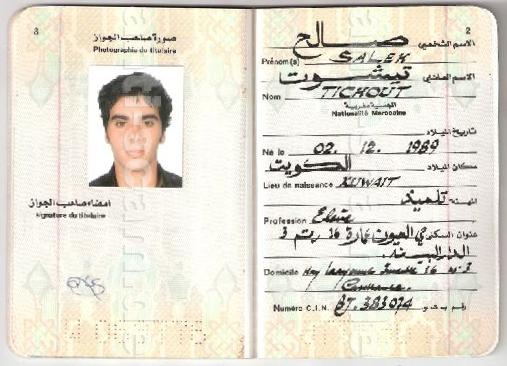 3
صورة صاحب الجواز
Photographie du titulaire
امضاء صاحب الجواز
signature du titulaire
2
الاسم الشخصي صالح
Prénom(s) SALEK
الاسم العائلي تيشوت
Nom TICHOUT
الجنسية مغربية
Nationalité Marocaine
تاريخ الميلاد
Né le 02. 12. 1989
مكان الميلاد الكويت
Lieu de naissance KUWAIT
المهنة تلميذ
Profession Elève
عنوان السكنى حي العيون عمارة 16 رقم 3
الدار البيضاء
Domicile Hay Laayoune 16 N° 3
Casablanca
Numéro C.I.N. BJ. 383074 رقم ب و